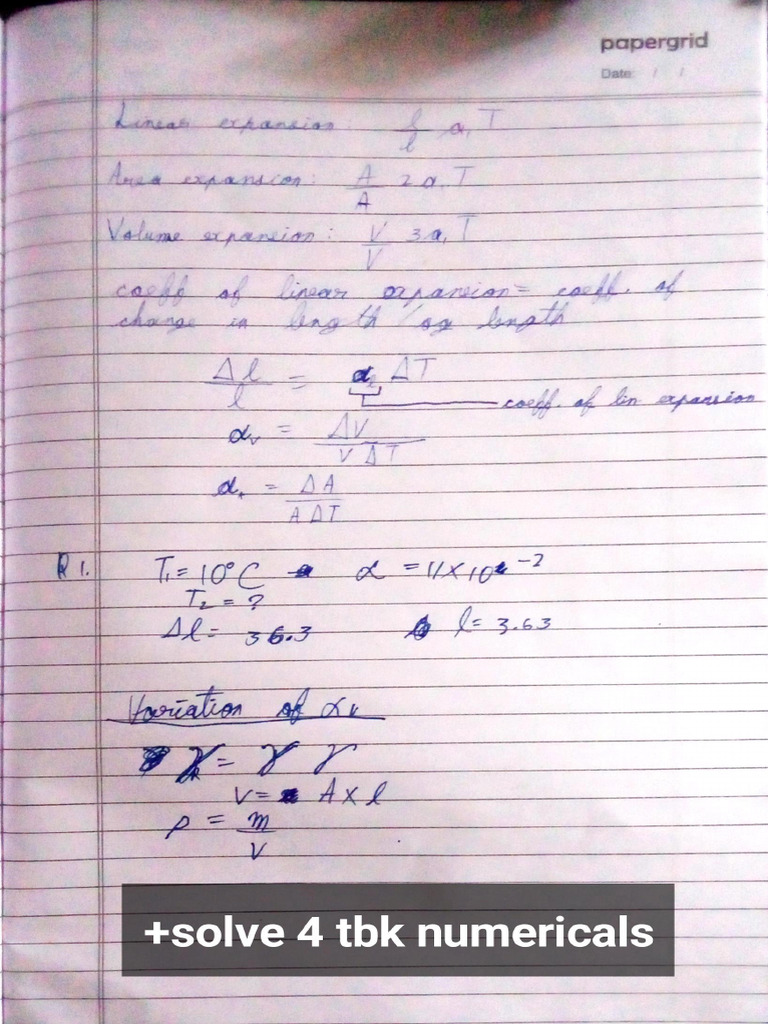 papergrid
Date: / /
Linear expansion: l/l α, T
Area expansion: A/A 2α, T
Volume expansion: V/V 3α, T
coeff of linear expansion = coeff. of
change in length / og length
Δl/l = αl ΔT
coeff. of lin expansion
αv = ΔV/VΔT
α = ΔA/AΔT
Q1. T1 = 10°C α = 11×10 -2
T2 = ?
Δl = 36.3 l = 3.63
Variation of αv
γ = γ γ
V = A × l
ρ = m/V
+solve 4 tbk numericals